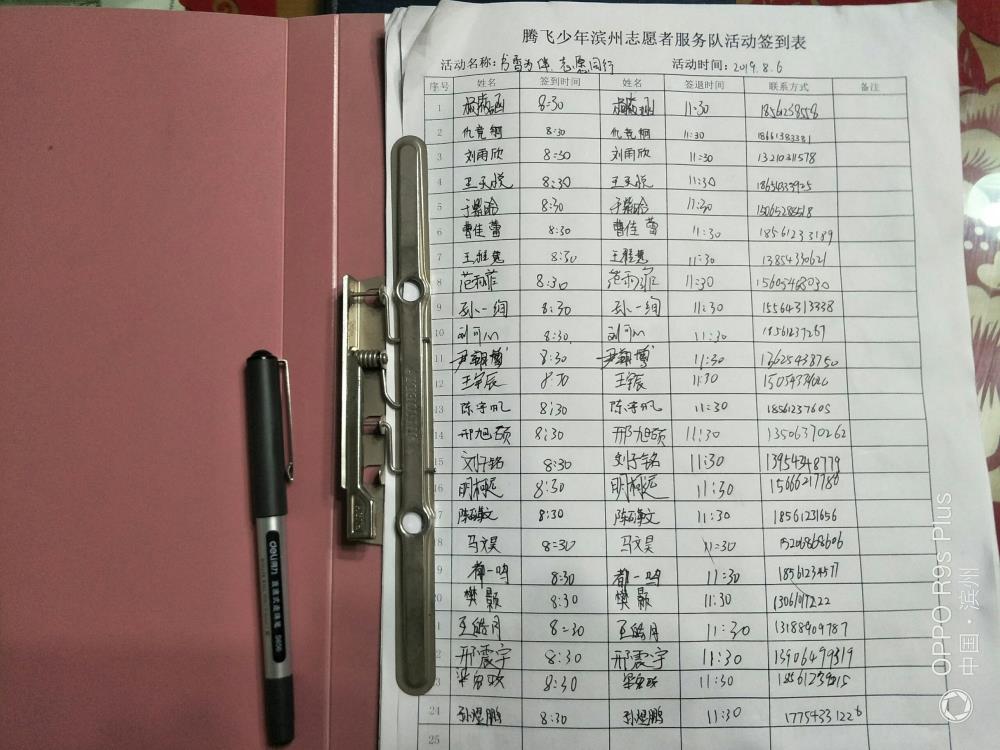 腾飞少年滨州志愿者服务队活动签到表
活动名称:书香为伴 志愿同行 活动时间:2019.8.6
序号 姓名 签到时间 姓名 签退时间 联系方式 备注
1 8:30 11:30 18561238558
2 仇竞钢 8:30 仇竞钢 11:30 18661383381
3 刘雨欣 8:30 刘雨欣 11:30 13210311578
4 王天悦 8:30 王天悦 11:30
5 于紫晗 8:30 于紫晗 11:30 15065285518
6 曹佳蕾 8:30 曹佳蕾 11:30 18561233189
7 8:30 11:30 13854330621
8 范雨菲 8:30 范雨菲 11:30 15605468030
9 孙一绚 8:30 孙一绚 11:30 15564313338
10 刘可心 8:30 刘可心 11:30 18561237267
11 尹翱博 8:30 尹翱博 11:30 13625438750
12 王宇辰 8:30 王宇辰 11:30
13 陈宇帆 8:30 陈宇帆 11:30 18561237605
14 邢旭硕 8:30 邢旭硕 11:30 13506370262
15 刘子铭 8:30 刘子铭 11:30 13954348779
16 明柯远 8:30 明柯远 11:30 15666217786
17 8:30 11:30 18561231656
18 马文昊 8:30 马文昊 11:30 15206868606
9 都一鸣 8:30 都一鸣 11:30 18561234577
20 樊颢 8:30 樊颢 11:30
1 王皓月 8:30 王皓月 11:30 13188909787
2 邢震宇 8:30 邢震宇 11:30 13906499319
3 8:30 11:30 18561239015
24 孙煜鹏 8:30 孙煜鹏 11:30 17754331226
25
deli得力 直液式走珠笔 S656
OPPO R9s Plus
中国·滨州